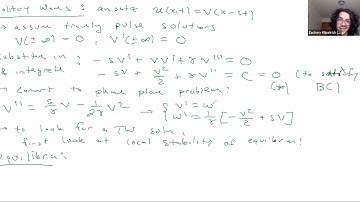 Solitary Waves: ansatz u(x,t) = V(x-st)
→ assume traveling pulse solutions
V(±∞) = 0, V'(±∞) = 0
Substitute in: -sV' + VV' + γV''' = 0
& integrate -sV + V²/2 + γV'' = C = 0 (to satisfy BC) (*)
→ Convert to phase plane problem:
V'' = s/γ V - 1/2γ V² → { V' = W
W' = 1/γ [-V²/2 + sV]
→ to look for a TW soln,
first look at local stability of equilibria!
equilibria:
Zachary